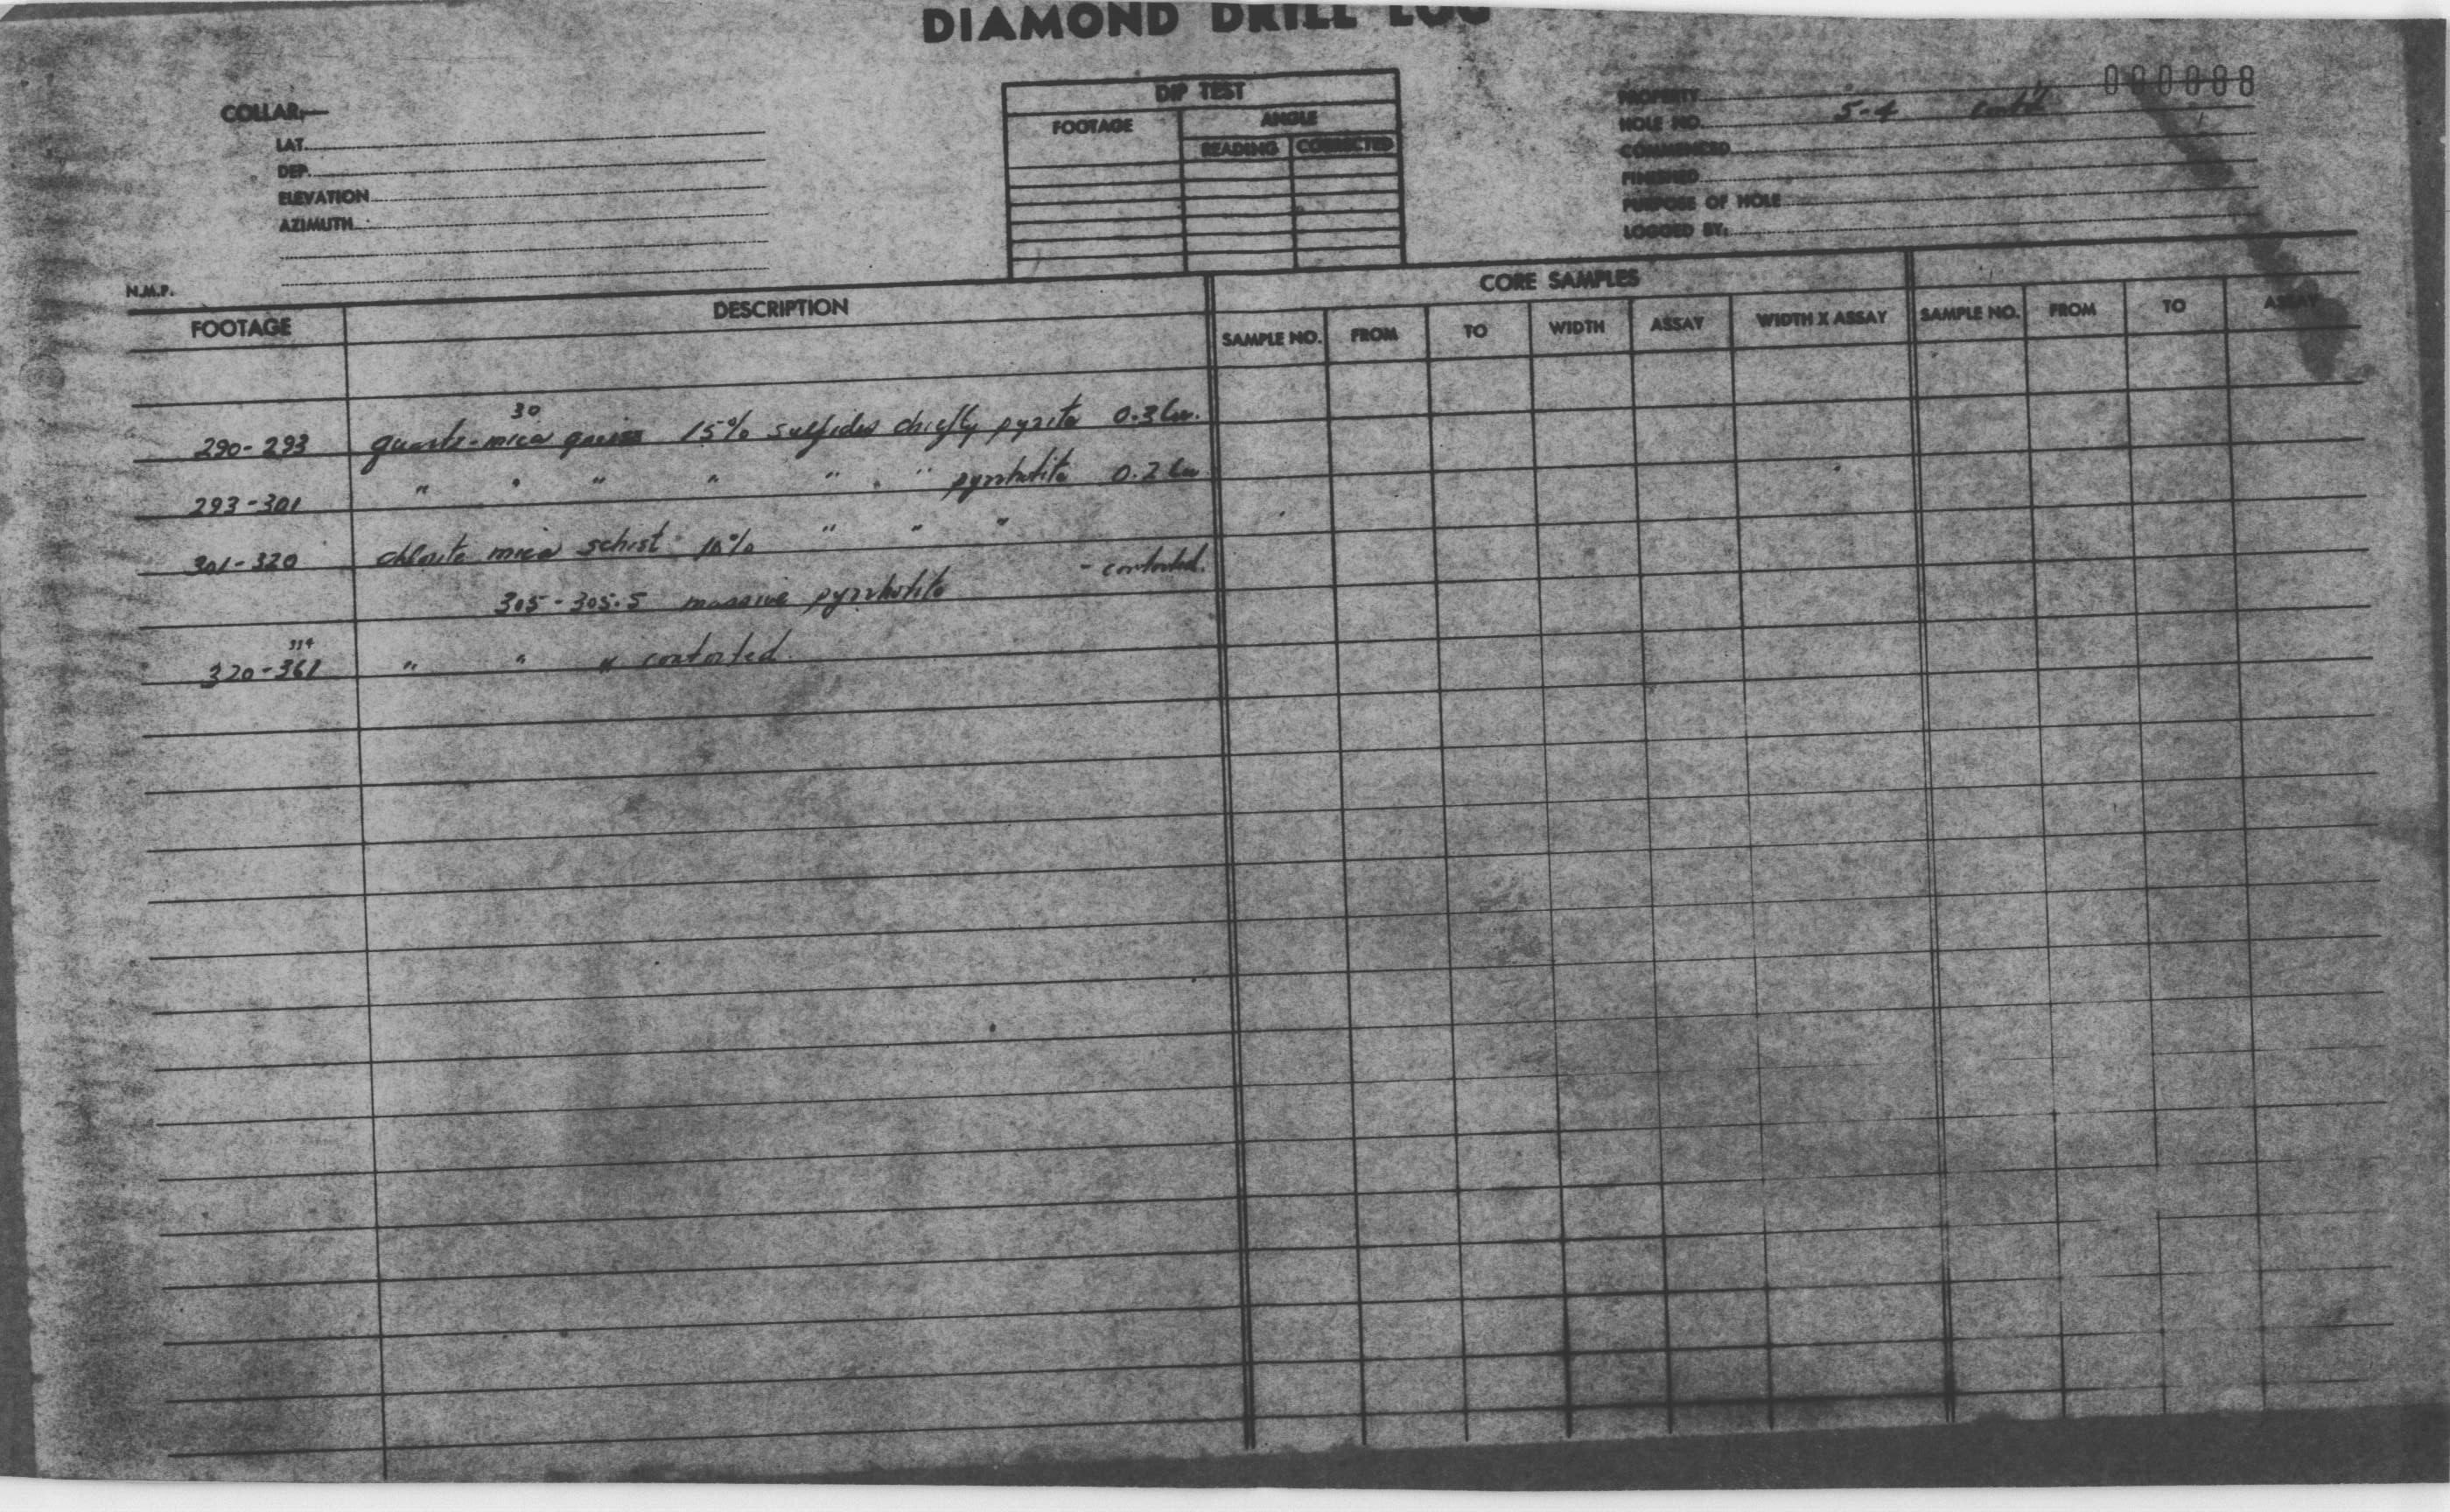 DIAMOND DRILL LOG
000088
COLLAR,—
LAT.
DEP.
ELEVATION
AZIMUTH
DIP TEST
FOOTAGE
ANGLE
READING CORRECTED
PROPERTY
HOLE NO. S-4 Cont'd
COMMENCED
FINISHED
PURPOSE OF HOLE
LOGGED BY:
N.M.P.
FOOTAGE DESCRIPTION CORE SAMPLES
SAMPLE NO. FROM TO WIDTH ASSAY WIDTH X ASSAY SAMPLE NO. FROM TO ASSAY
30
290-293 quartz-mica gneiss 15% sulfides chiefly pyrite 0.3 Cu.
293-301 " " " " " " pyrrhotite 0.2 Cu
301-320 chlorite mica schist 10% " " "
305-305.5 massive pyrrhotite - contorted.
334
320-361 " " " contorted.